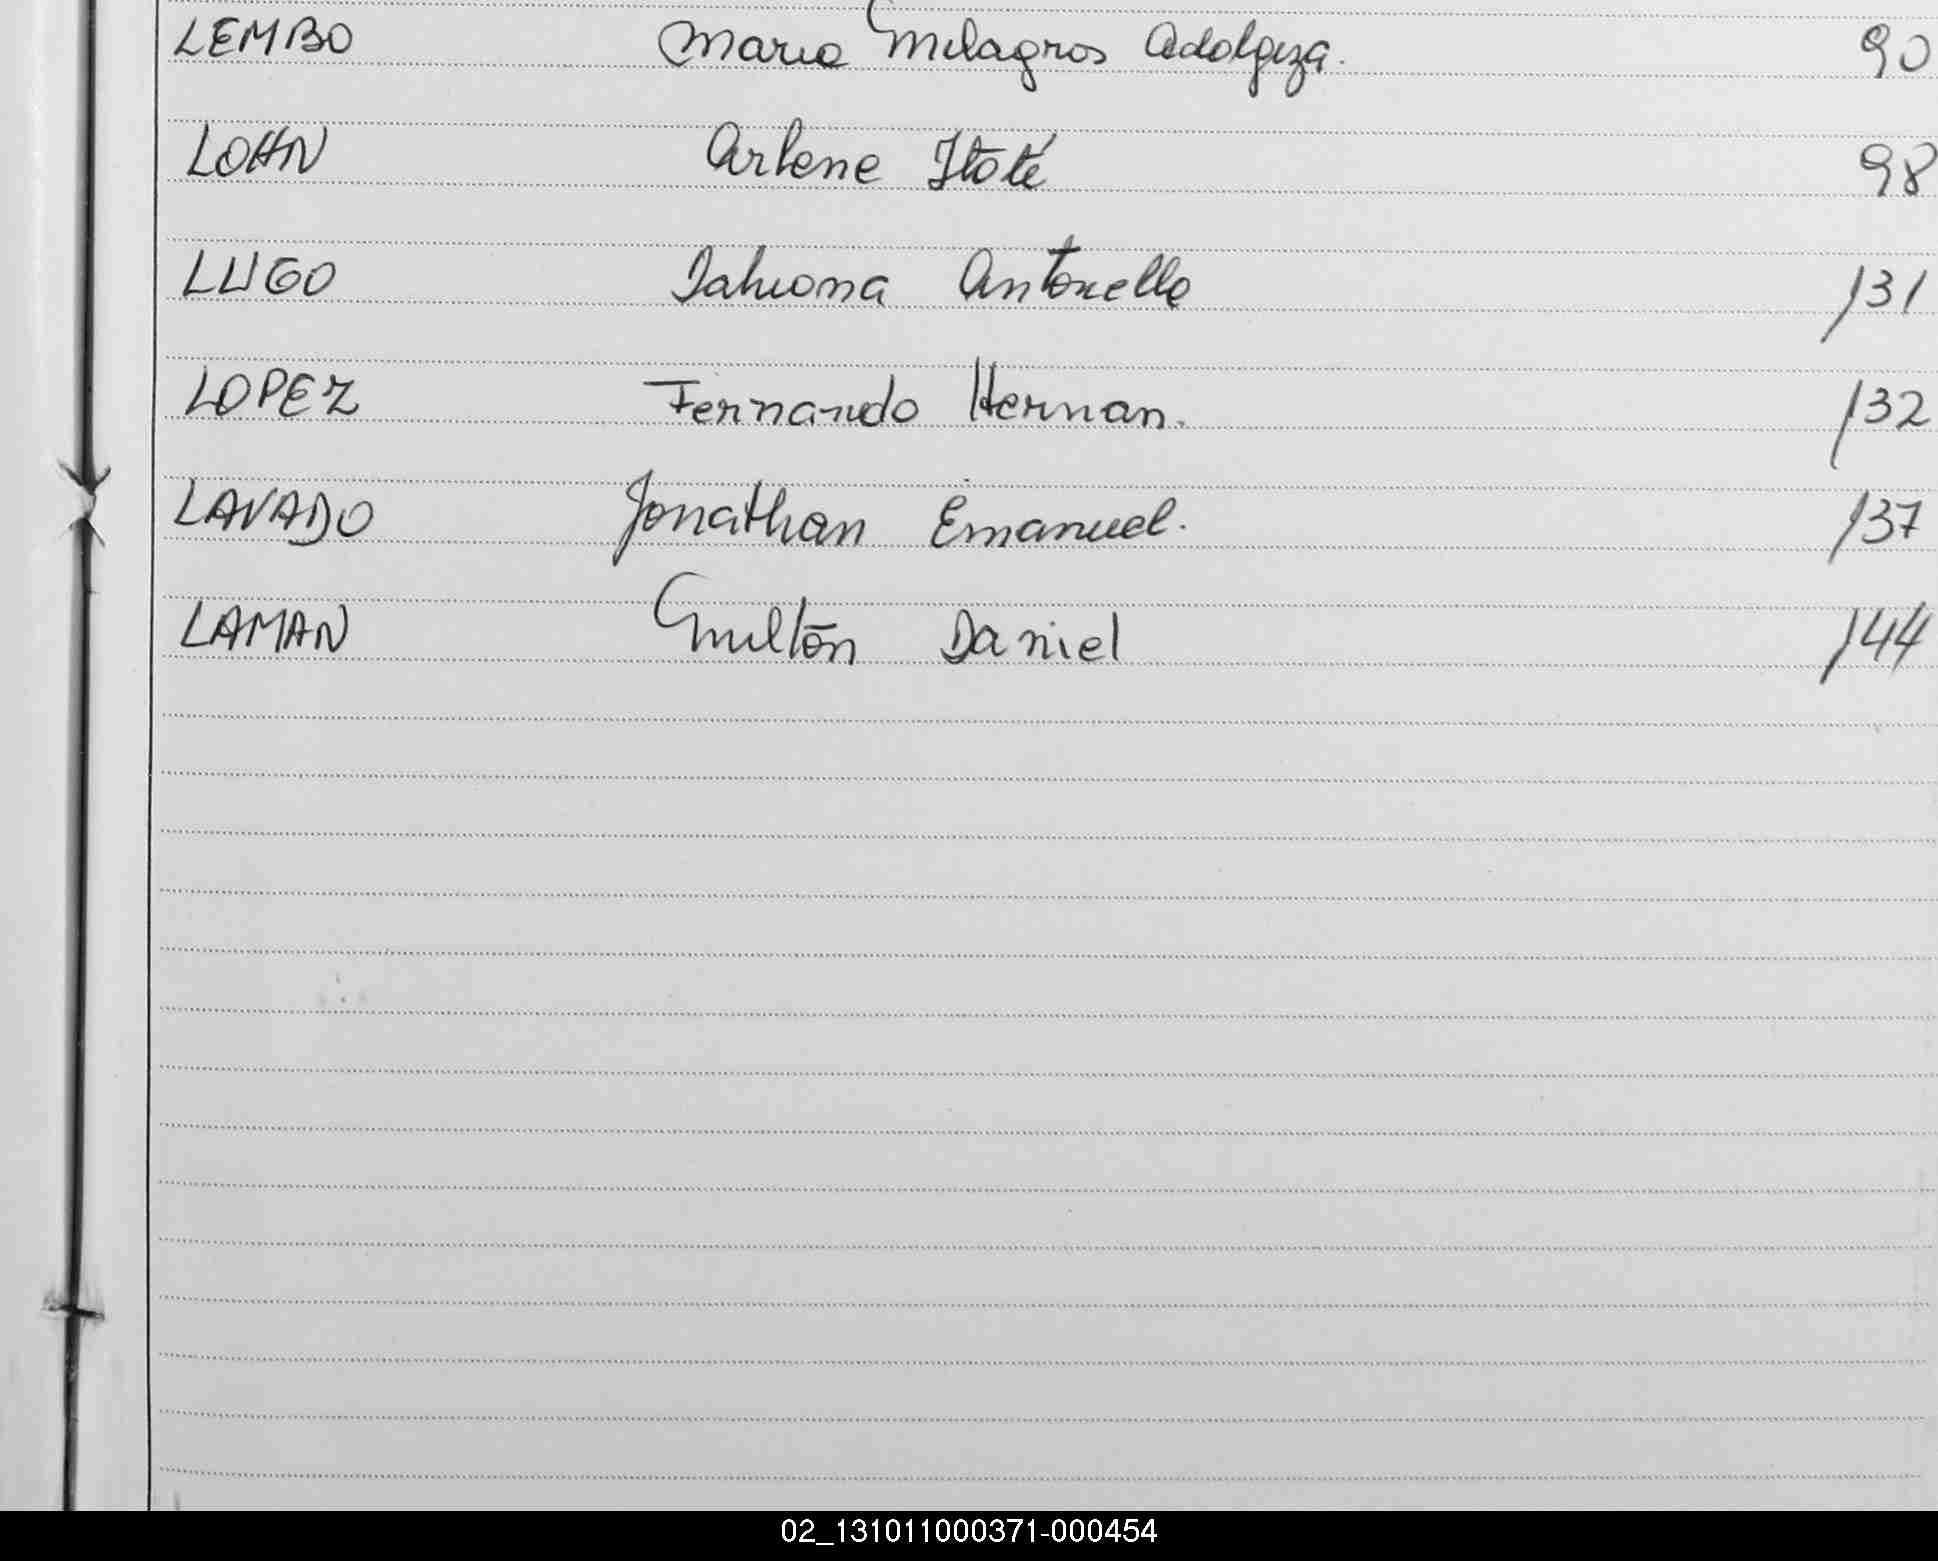 LEMBO Maria Milagros Adolgiza. 90
LOHN Arlene Itatí 98
LUGO Tahiona Antonella 131
LOPEZ Fernando Hernan. 132
LAVADO Jonathan Emanuel. 137
LAMAN Milton Daniel 144
02_131011000371-000454